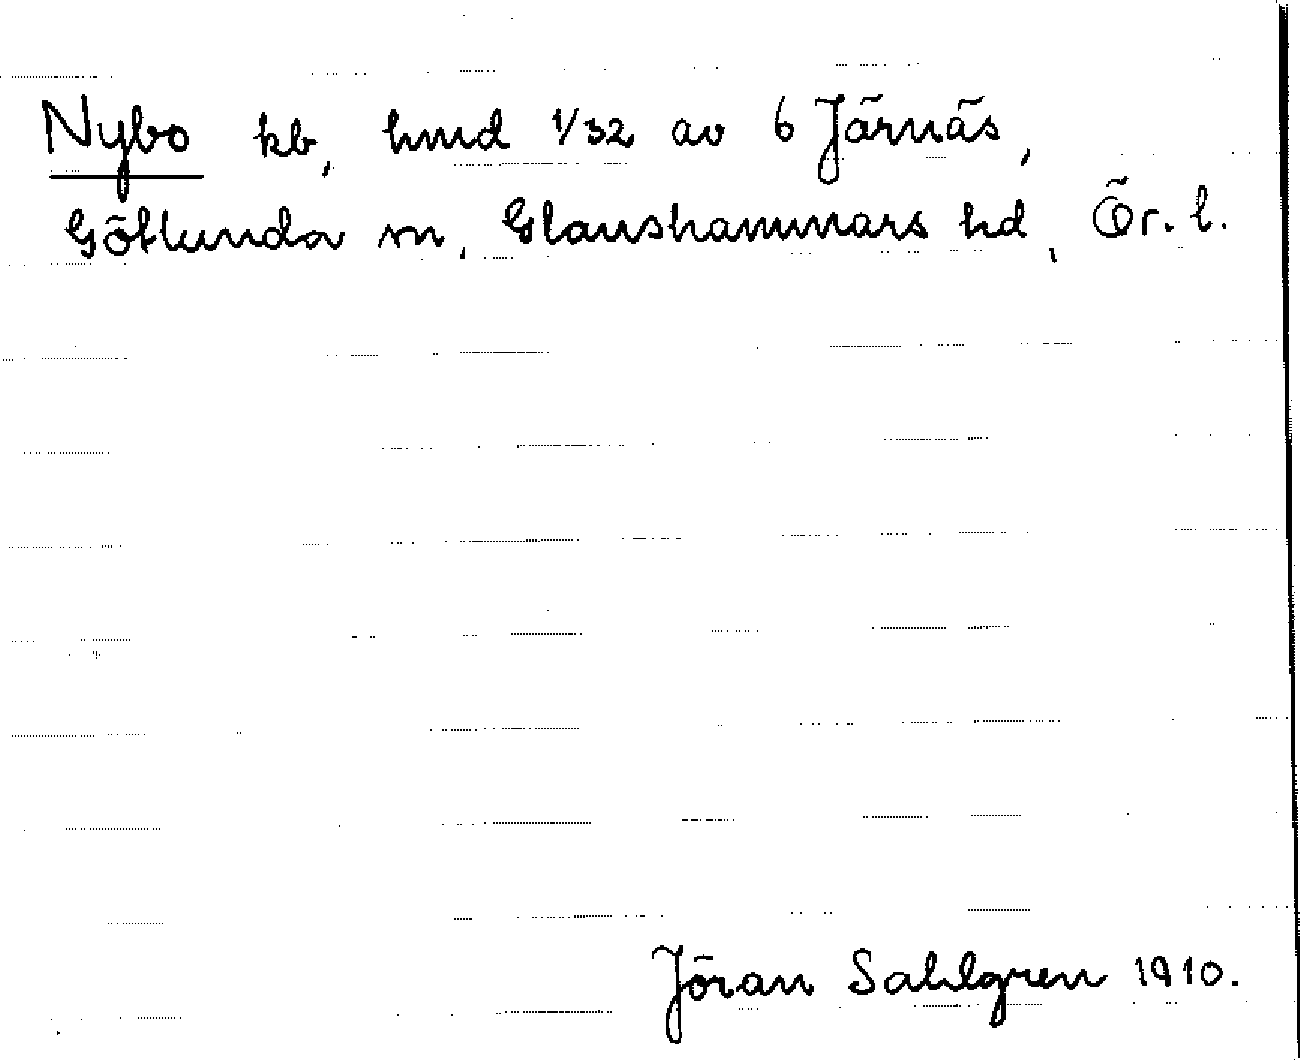 Nybo kb, hmd 1/32 av 6 Järnäs,
Götlunda sn, Glanshammars hd, Ör. l.
Jöran Sahlgren 1910.